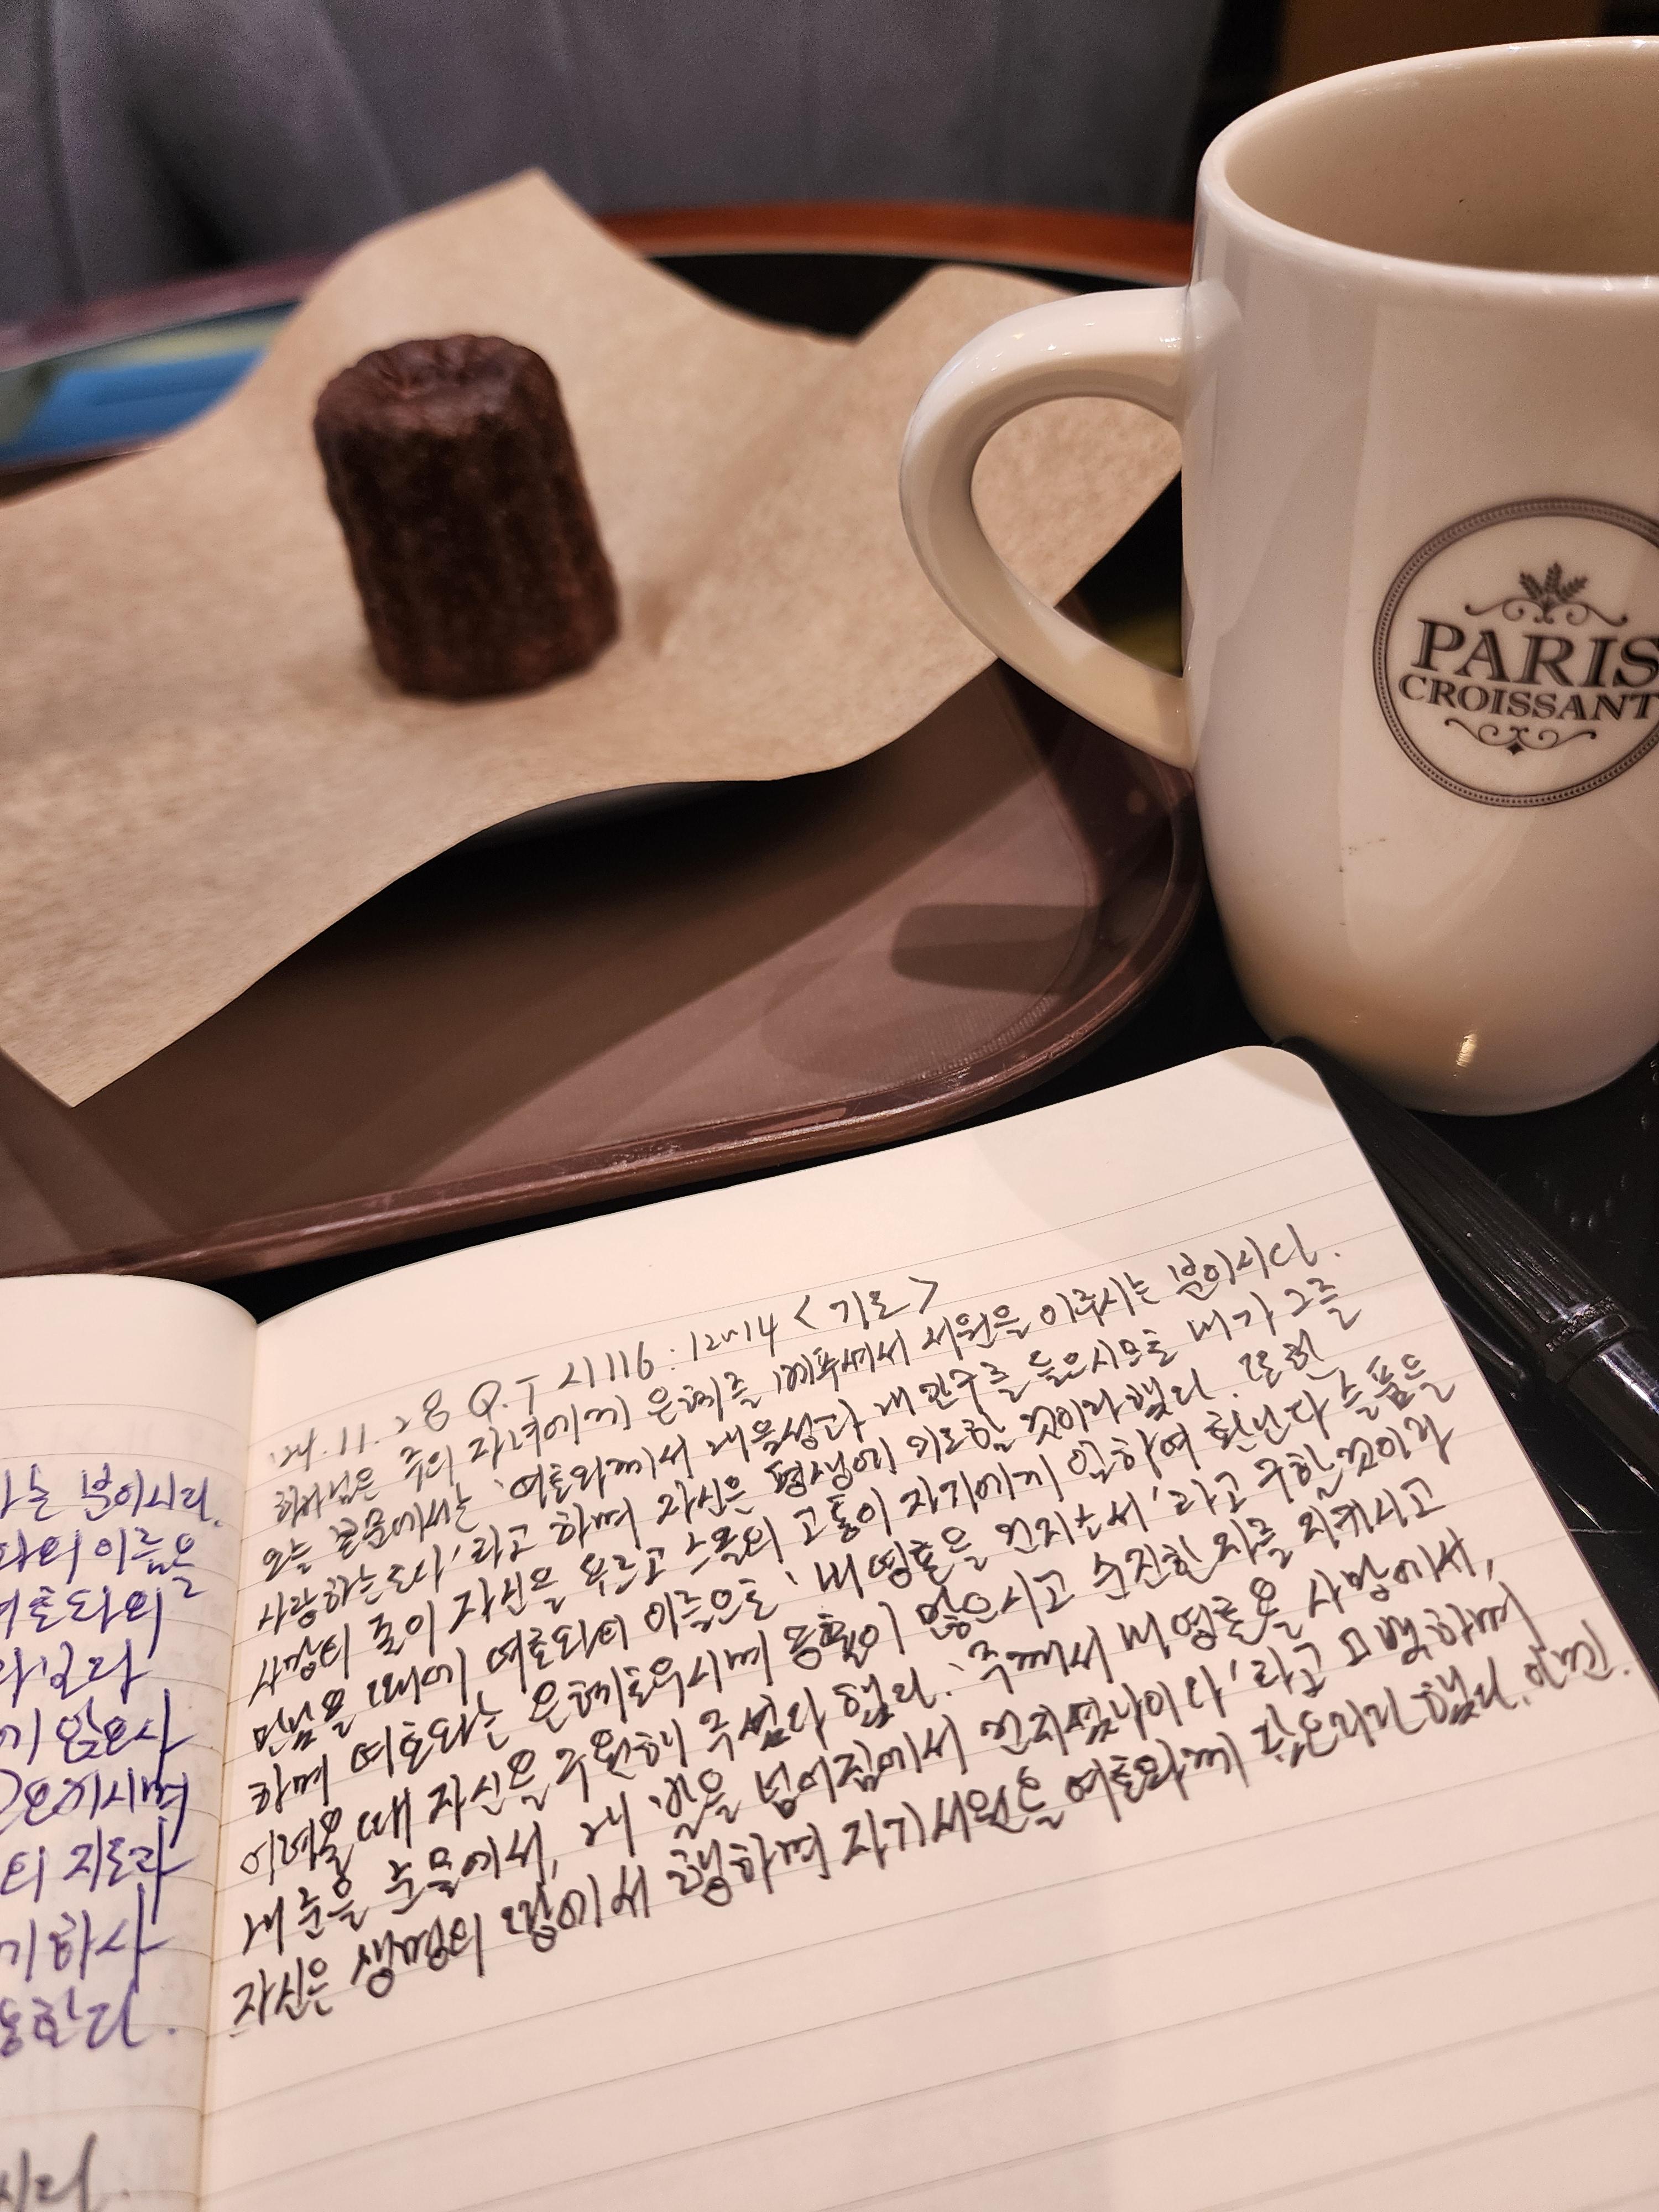 PARIS
CROISSANT
'24.11.28 Q.T 시116:12~14 <기도>
하나님은 주의 자녀에게 은혜를 베푸셔서 서원을 이루시는 분이시다.
오늘 본문에서는 '여호와께서 내 음성과 내 간구를 들으시므로 내가 그를
사랑하는도다'라고 하며 자신은 평생에 기도할 것이라 했다. 또한
사망의 줄이 자신을 두르고 스올의 고통이 자기에게 임하여 환난과 슬픔을
만났을 때에 여호와의 이름으로 '내 영혼을 건지소서'라고 구한 것이라
하며 여호와는 은혜로우시며 긍휼이 많으시고 순진한 자를 지키시고
어려울 때 자신을 구원해 주셨다 했다. '주께서 내 영혼을 사망에서,
내 눈을 눈물에서, 내 발을 넘어짐에서 건지셨나이다'라고 고백하며
자신은 생명의 땅에서 행하며 자기 서원을 여호와께 갚으리라 했다.
는 분이시다.
의 이름을
여호와의
기 하사
한다.